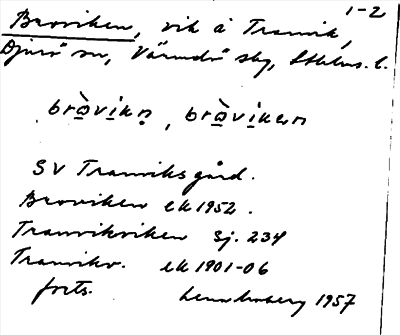 1-2
Broviken, vik å Tranvik,
Djurö sn, Värmdö skg, Sthlms. l.
bròvikn, bròviken
SV Tranviksgård.
Broviken ek 1952.
Tranvikviken Sj. 234
Tranvikv. ek 1901-06
forts. 1957